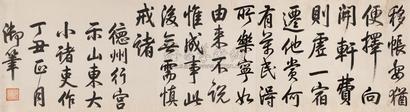 移帳安猶
便擇向
開軒費
則虛一宿
還他貴何
有萬民得
所樂寧如
由來不說
惟成事此
後無需慎
戒諸
德州行宮
示山東大
小諸吏作
丁丑正月
御筆